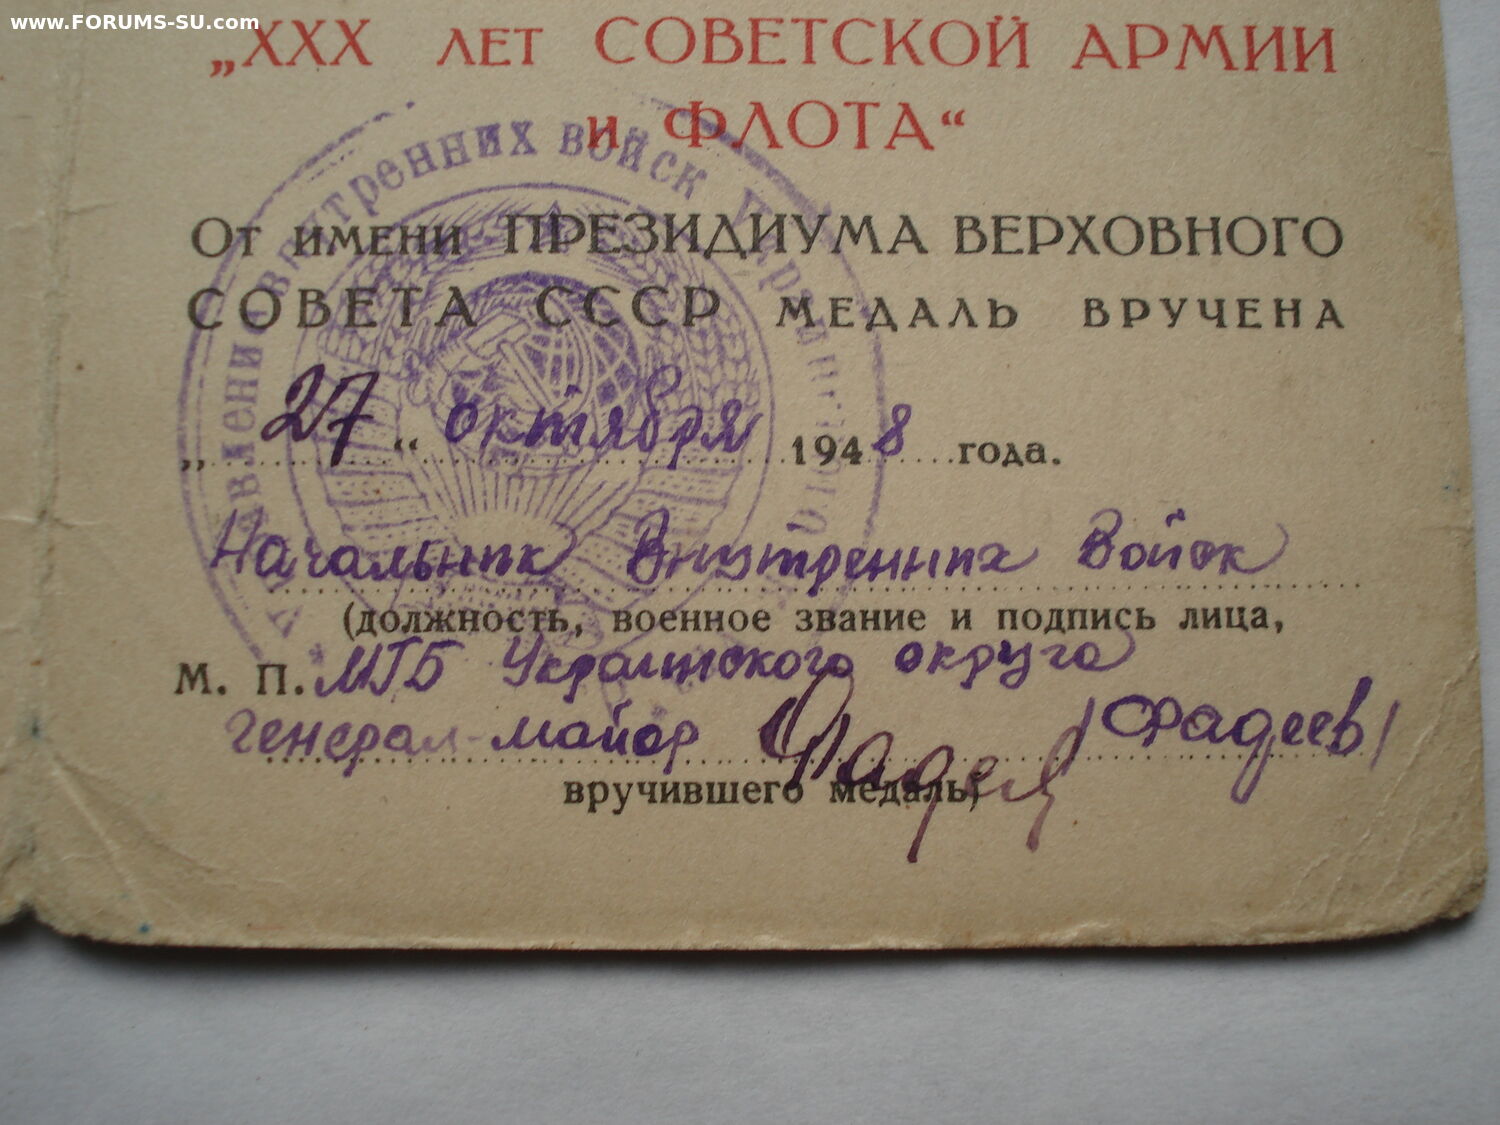 www.FORUMS-SU.com
„XXX ЛЕТ СОВЕТСКОЙ АРМИИ
и ФЛОТА“
внутренних войск Украинского
От имени ПРЕЗИДИУМА ВЕРХОВНОГО
СОВЕТА СССР МЕДАЛЬ ВРУЧЕНА
„27“ октября 1948 года.
Начальник Внутренних Войск
(должность, военное звание и подпись лица,
М. П. МГБ Украинского округа
генерал-майор Фадеев /Фадеев/
вручившего медаль)